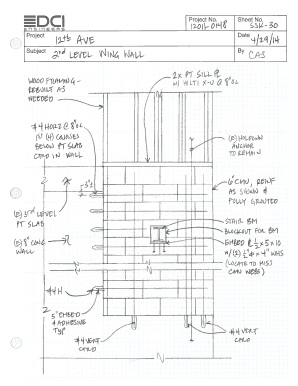 DCI
ENGINEERS
Project No.
12011-0148
Sheet No.
SSK-30
Project
12th AVE
Date
4/29/14
Subject
2nd LEVEL WING WALL
By
CAS
WOOD FRAMING -
REBUILT AS
NEEDED
2x PT SILL PL
W/ HILTI X-U @ 8"oc
#4 HORZ @ 8"oc
IN (4) COURSES
BELOW PT SLAB
CTRD IN WALL
(E) HOLDOWN
ANCHOR
TO REMAIN
6" CMU, REINF
AS SHOWN &
FULLY GROUTED
(E) 3rd LEVEL
PT SLAB
(E) 8" CONC
WALL
STAIR BM
BLOCKOUT FOR BM
EMBED PL 1/2 x 5 x 10
W/ (2) 1/2"Ø x 4" WHS
(LOCATE TO MISS
CMU WEBS)
#4 H
5" EMBED
& ADHESIVE
TYP
#4 VERT
CTRD
#4 VERT
CTRD